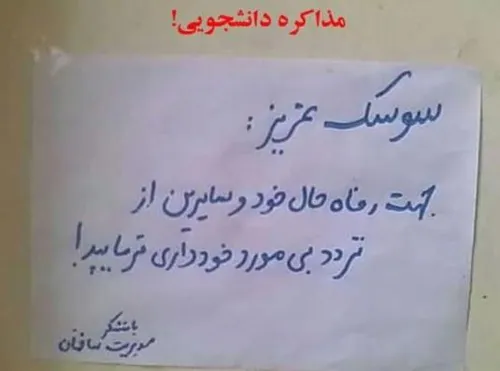 مذاکره دانشجویی!
سوسک عزیز :
جهت رفاه حال خود و سایرین از
تردد بی مورد خودداری فرمایید!
با تشکر
مدیریت ساختمان